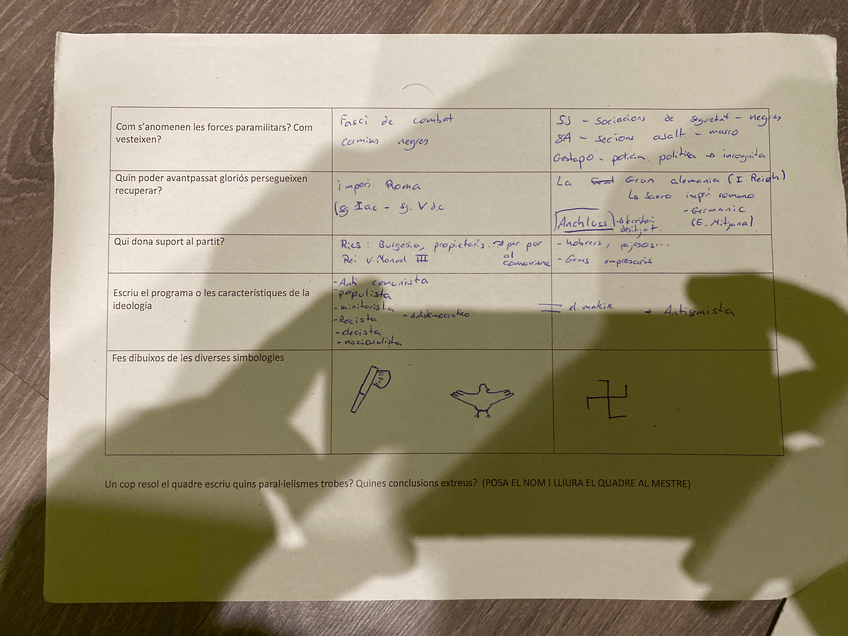 Com s'anomenen les forces paramilitars? Com
vesteixen?
Fasci de combat
camises negres
SS - sociacions de seguretat - negres
SA - secions asalt - marro
Gestapo - policia politica → incognita
Quin poder avantpassat gloriós persegueixen
recuperar?
imperi Roma
(sg I a.c - sg. V d.c
La Gran alemania (I Reich)
Lo sacro imperi romano
- Germanic
(E. Mitjana)
Anchluss
Qui dona suport al partit?
Rics: Burgesia, propietaris
Rei V. Manuel III
al comunisme
- hobrers, pajesos...
- Grans empresaris
Escriu el programa o les característiques de la
ideologia
- Anti comunista
populista
- Racista - Antidemocratico
- nacionalista
= el mateix + Antisemista
Fes dibuixos de les diverses simbologies
Un cop resol el quadre escriu quins paral·lelismes trobes? Quines conclusions extreus? (POSA EL NOM I LLIURA EL QUADRE AL MESTRE)